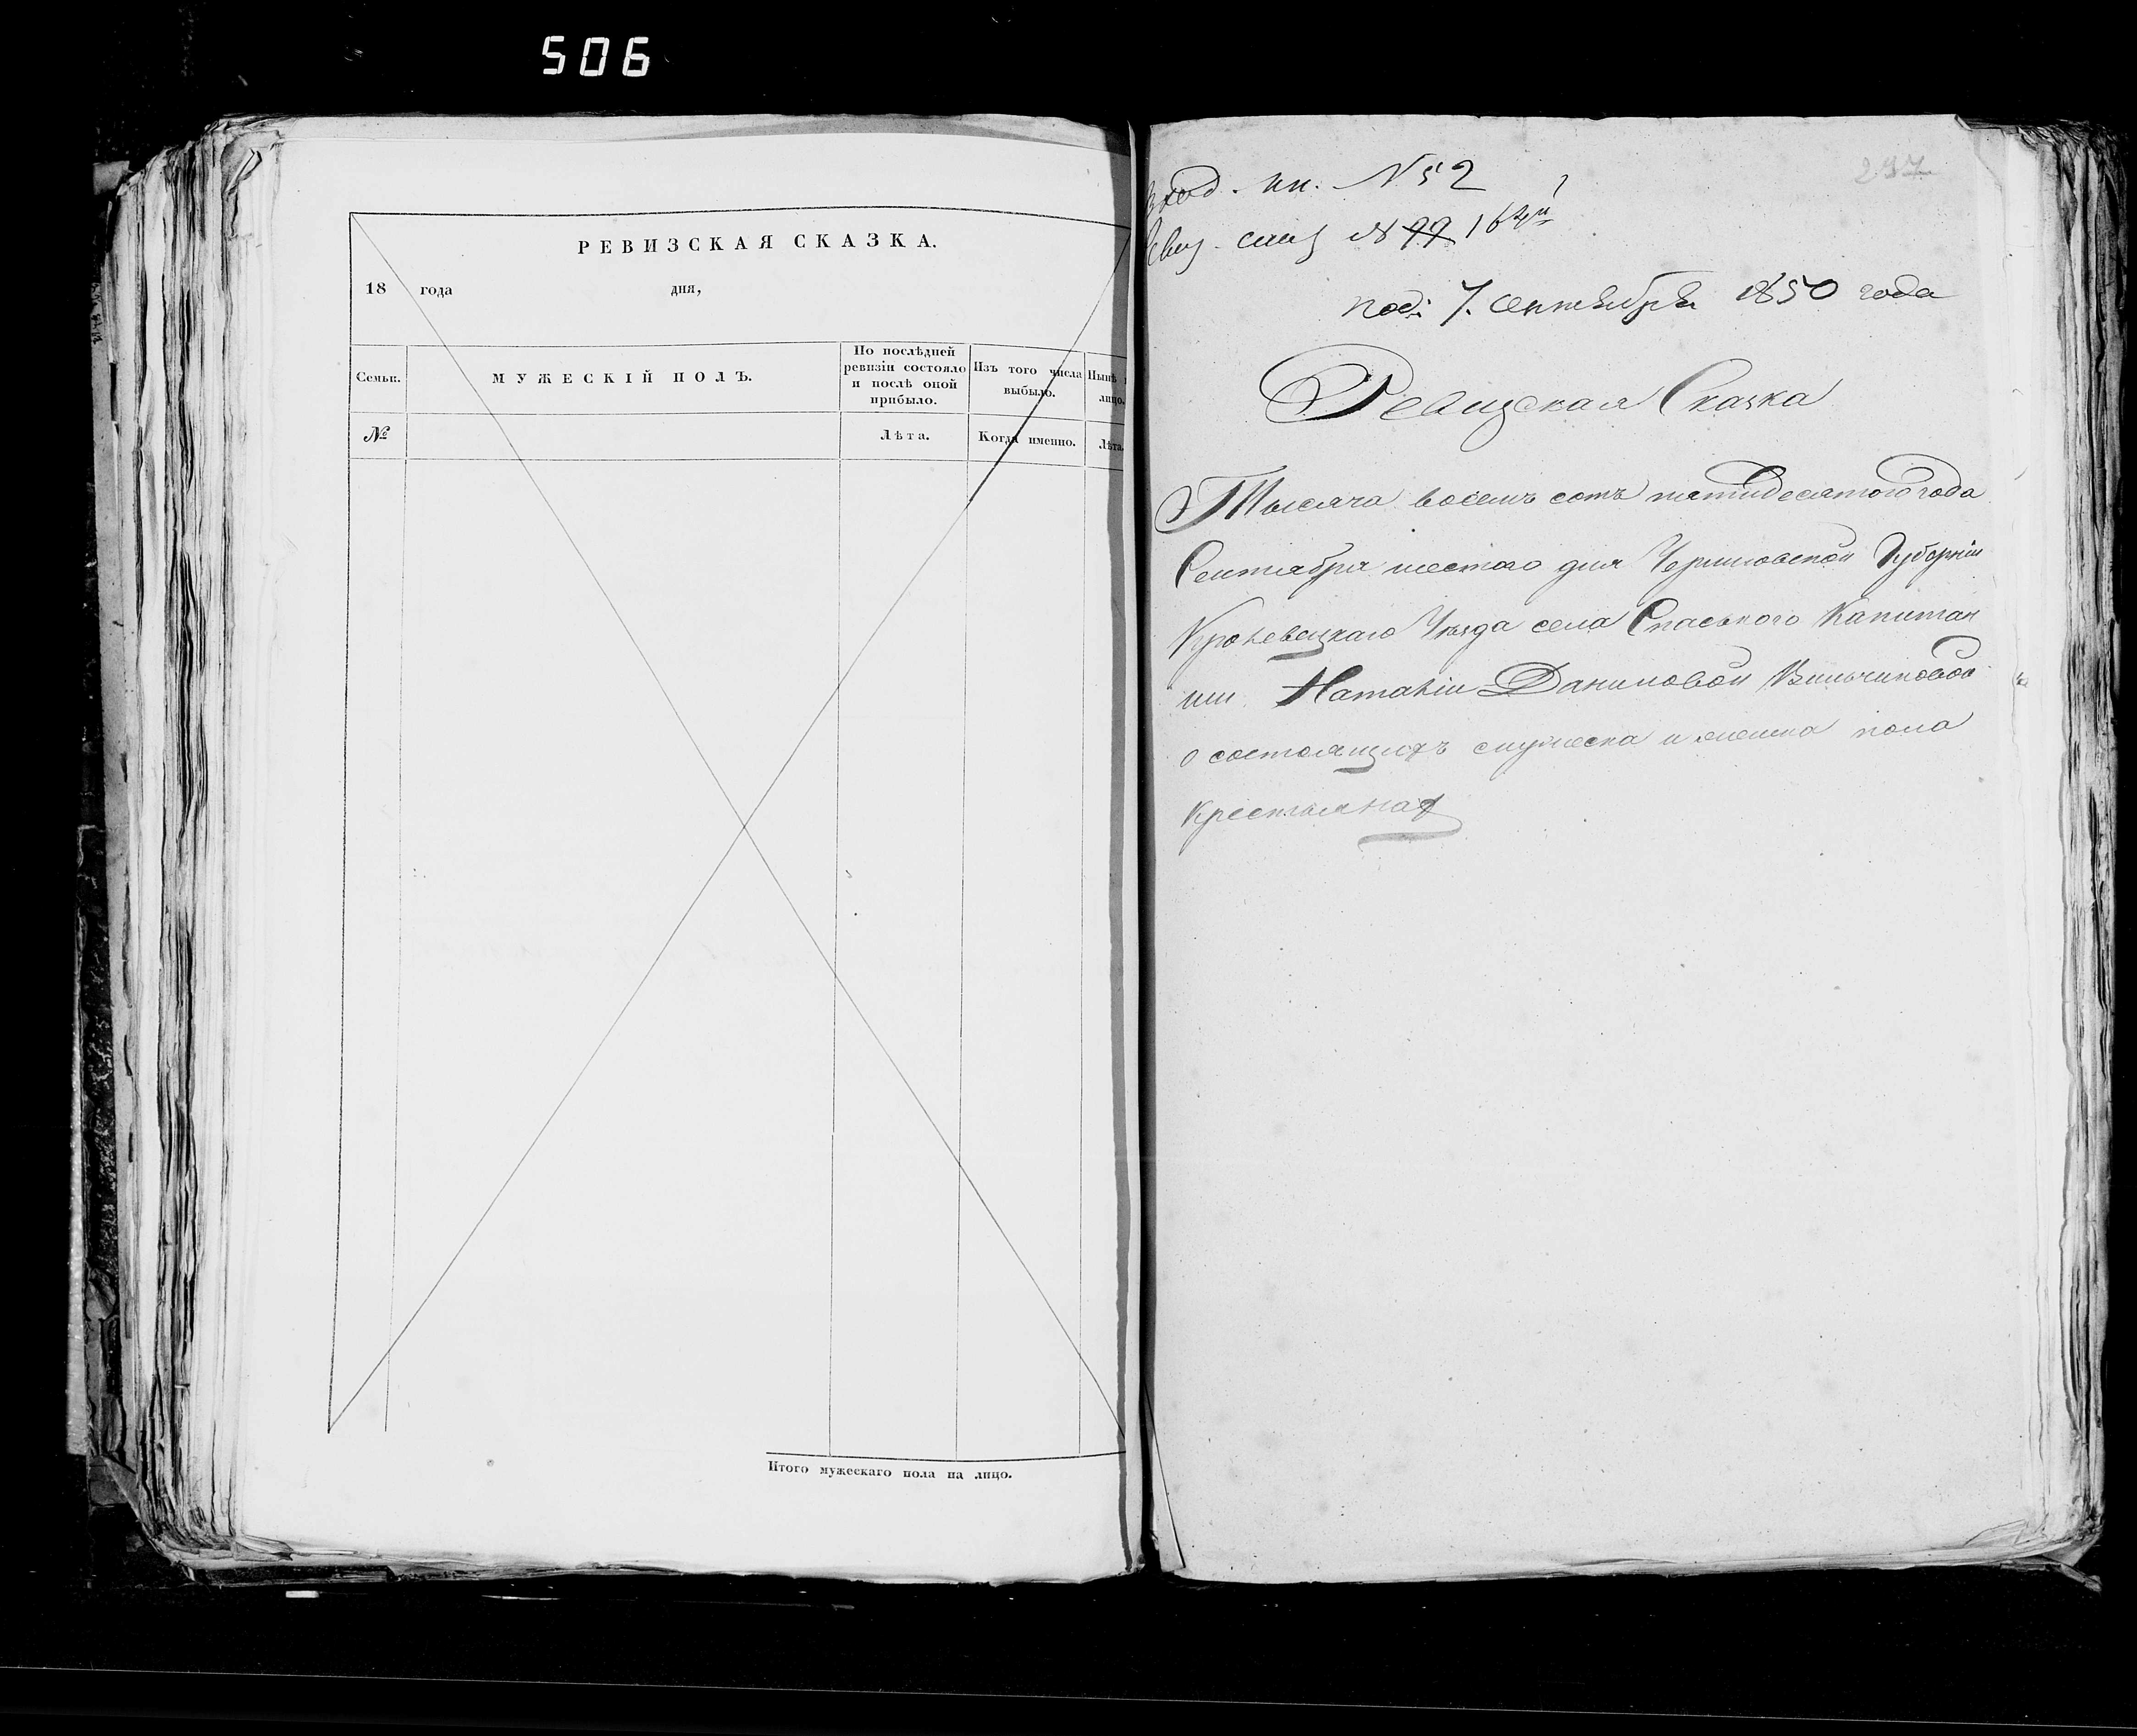 506
РЕВИЗСКАЯ СКАЗКА.
18 года дня,
Семьи.
МУЖЕСКІЙ ПОЛЪ.
По послѣдней ревизіи состояло и послѣ оной прибыло.
Изъ того числа выбыло.
Нынѣ
лицо.
№
Лѣта.
Когда именно.
Лѣта.
Итого мужескаго пола на лицо.
297
Вход. кн. N 52
Ревиз. сказ № 99 164й
под: 7. Сентября 1850 года
Ревизская Сказка
Тысяча восемъ сотъ пятидесятого года
Сентября шестого дня Черниговской Губерніи
Кролевецкаго Уѣзда села Спаського Капитан
ши Наталіи Даниловой
о состоящихъ мужеска и женска пола
Крестьянах